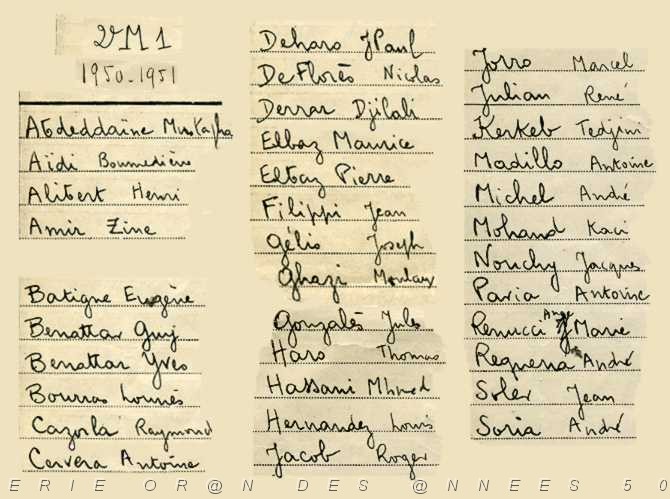 2e M 1
1950-1951
Abdeddaïne Mustapha
Aïdi Boumedière
Alibert Henri
Amir Zine
Batigne Eugène
Benattar Guy
Benattar Yves
Bourras Lounès
Cazorla Raymond
Cervera Antoine
Deharo JPaul
DeFlorès Nicolas
Derrar Djilali
Elbaz Maurice
Elbaz Pierre
Filippi Jean
Gélis Joseph
Ghazi
Gonzalès Jules
Haro Thomas
Hassani Mhmed
Hernandez Louis
Jacob Roger
Jorro Marcel
Julian René
Kerkeb Tedjini
Madillo Antoine
Michel André
Mohand Kaci
Nouchy Jacques
Pavia Antoine
Renucci Ange Marie
Reguena André
Soler Jean
Soria André
E R I E O R @ N D E S @ N N E E S 5 0